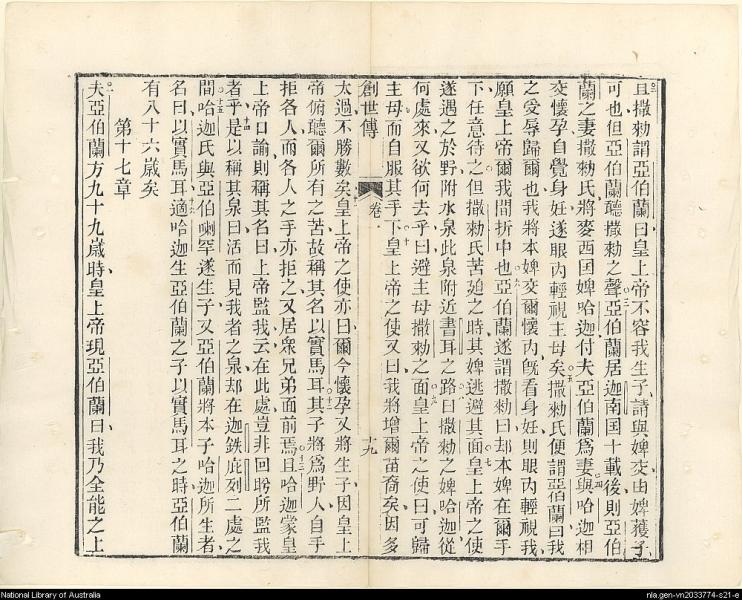 且撒勑謂亞伯蘭曰皇上帝不容我生子請與婢交由婢獲子
可也但亞伯蘭聽撒勑之聲亞伯蘭居迦南国十載後則亞伯
蘭之妻撒勑氏將麥西国婢哈迦付夫亞伯蘭爲妻與哈迦相
交懷孕自覺身妊遂眼內輕視主母矣撒勑氏便謂亞伯蘭曰我
之受辱歸爾也我將本婢交爾懷內旣看身妊則眼內輕視我
願皇上帝爾我間折中也亞伯蘭遂謂撒勑曰却本婢在爾手
下任意待之但撒勑氏苦廹之時其婢逃避其面皇上帝之使
遂遇之於野附水泉此泉附近書耳之路曰撒勑之婢哈迦從
何處來又欲何去乎曰避主母撒勑之面皇上帝之使曰可歸
主母而自服其手下皇上帝之使又曰我將增爾苗裔矣因多
創世傳 卷一 十九
太過不勝數矣皇上帝之使亦曰爾今懷孕又將生子因皇上
帝俯聽爾所有之苦故稱其名以實馬耳其子將爲野人自手
拒各人而各人之手亦拒之又居衆兄弟面前焉且哈迦蒙皇
上帝口諭則稱其名曰上帝監我云在此處豈非回盻所監我
者乎是以稱其泉曰活而見我者之泉却在迦鉄庇列二處之
間哈迦氏與亞伯喇罕遂生子又亞伯蘭將本子哈迦所生者
名曰以實馬耳適哈迦生亞伯蘭之子以實馬耳之時亞伯蘭
有八十六歲矣
第十七章
夫亞伯蘭方九十九歲時皇上帝現亞伯蘭曰我乃全能之上
National Library of Australia
nla.gen-vn2033774-s21-e